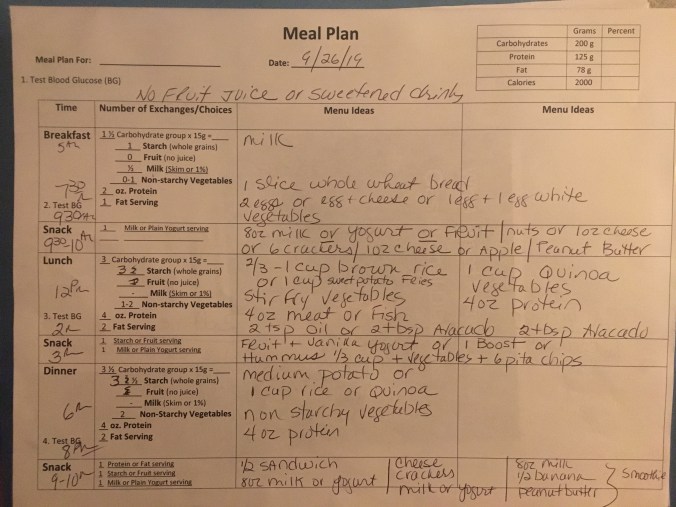 Meal Plan
Grams Percent
Carbohydrates 200 g
Protein 125 g
Fat 78 g
Calories 2000
Meal Plan For: Date: 9/26/19
1. Test Blood Glucose (BG)
No Fruit Juice or sweetened drinks
Time Number of Exchanges/Choices Menu Ideas Menu Ideas
Breakfast 1 ½ Carbohydrate group x 15g=
1 Starch (whole grains) milk
0 Fruit (no juice)
½ Milk (Skim or 1%)
0-1 Non-starchy Vegetables
730 2 oz. Protein 1 slice whole wheat bread
2. Test BG 1 Fat Serving 2 eggs or egg + cheese or 1 egg + 1 egg white
930 vegetables
Snack 1 Milk or Plain Yogurt serving 8oz milk or yogurt or Fruit / nuts or 1oz cheese
930-10 or 6 crackers / 1oz cheese or Apple / Peanut Butter
Lunch 3 Carbohydrate group x 15g= 2/3 - 1 cup brown rice 1 cup Quinoa
3 Starch (whole grains) or 1 cup sweet potato Fries vegetables
Fruit (no juice) Stir Fry vegetables 4oz protein
12pm - Milk (Skim or 1%)
1-2 Non-starchy Vegetables
3. Test BG 4 oz. Protein 4oz meat or Fish
2 Fat Serving 2 tsp oil or 2 tbsp Avacado 2 tbsp Avacado
Snack 1 Starch or Fruit serving Fruit + Vanilla Yogurt or 1 Boost or
1 Milk or Plain Yogurt serving Hummus 1/3 cup + vegetables + 6 pita chips
Dinner 3 ½ Carbohydrate group x 15g= medium potato or
3 ½ Starch (whole grains) 1 cup rice or Quinoa
Fruit (no juice)
- Milk (Skim or 1%) non starchy vegetables
2 Non-Starchy Vegetables
4 oz. Protein 4 oz protein
4. Test BG 2 Fat Serving
Snack 1 Protein or Fat serving 1/2 sandwich cheese 8oz milk
9-10 1 Starch or Fruit serving crackers 1/2 banana Smoothie
1 Milk or Plain Yogurt serving 8oz milk or yogurt milk or yogurt peanut butter